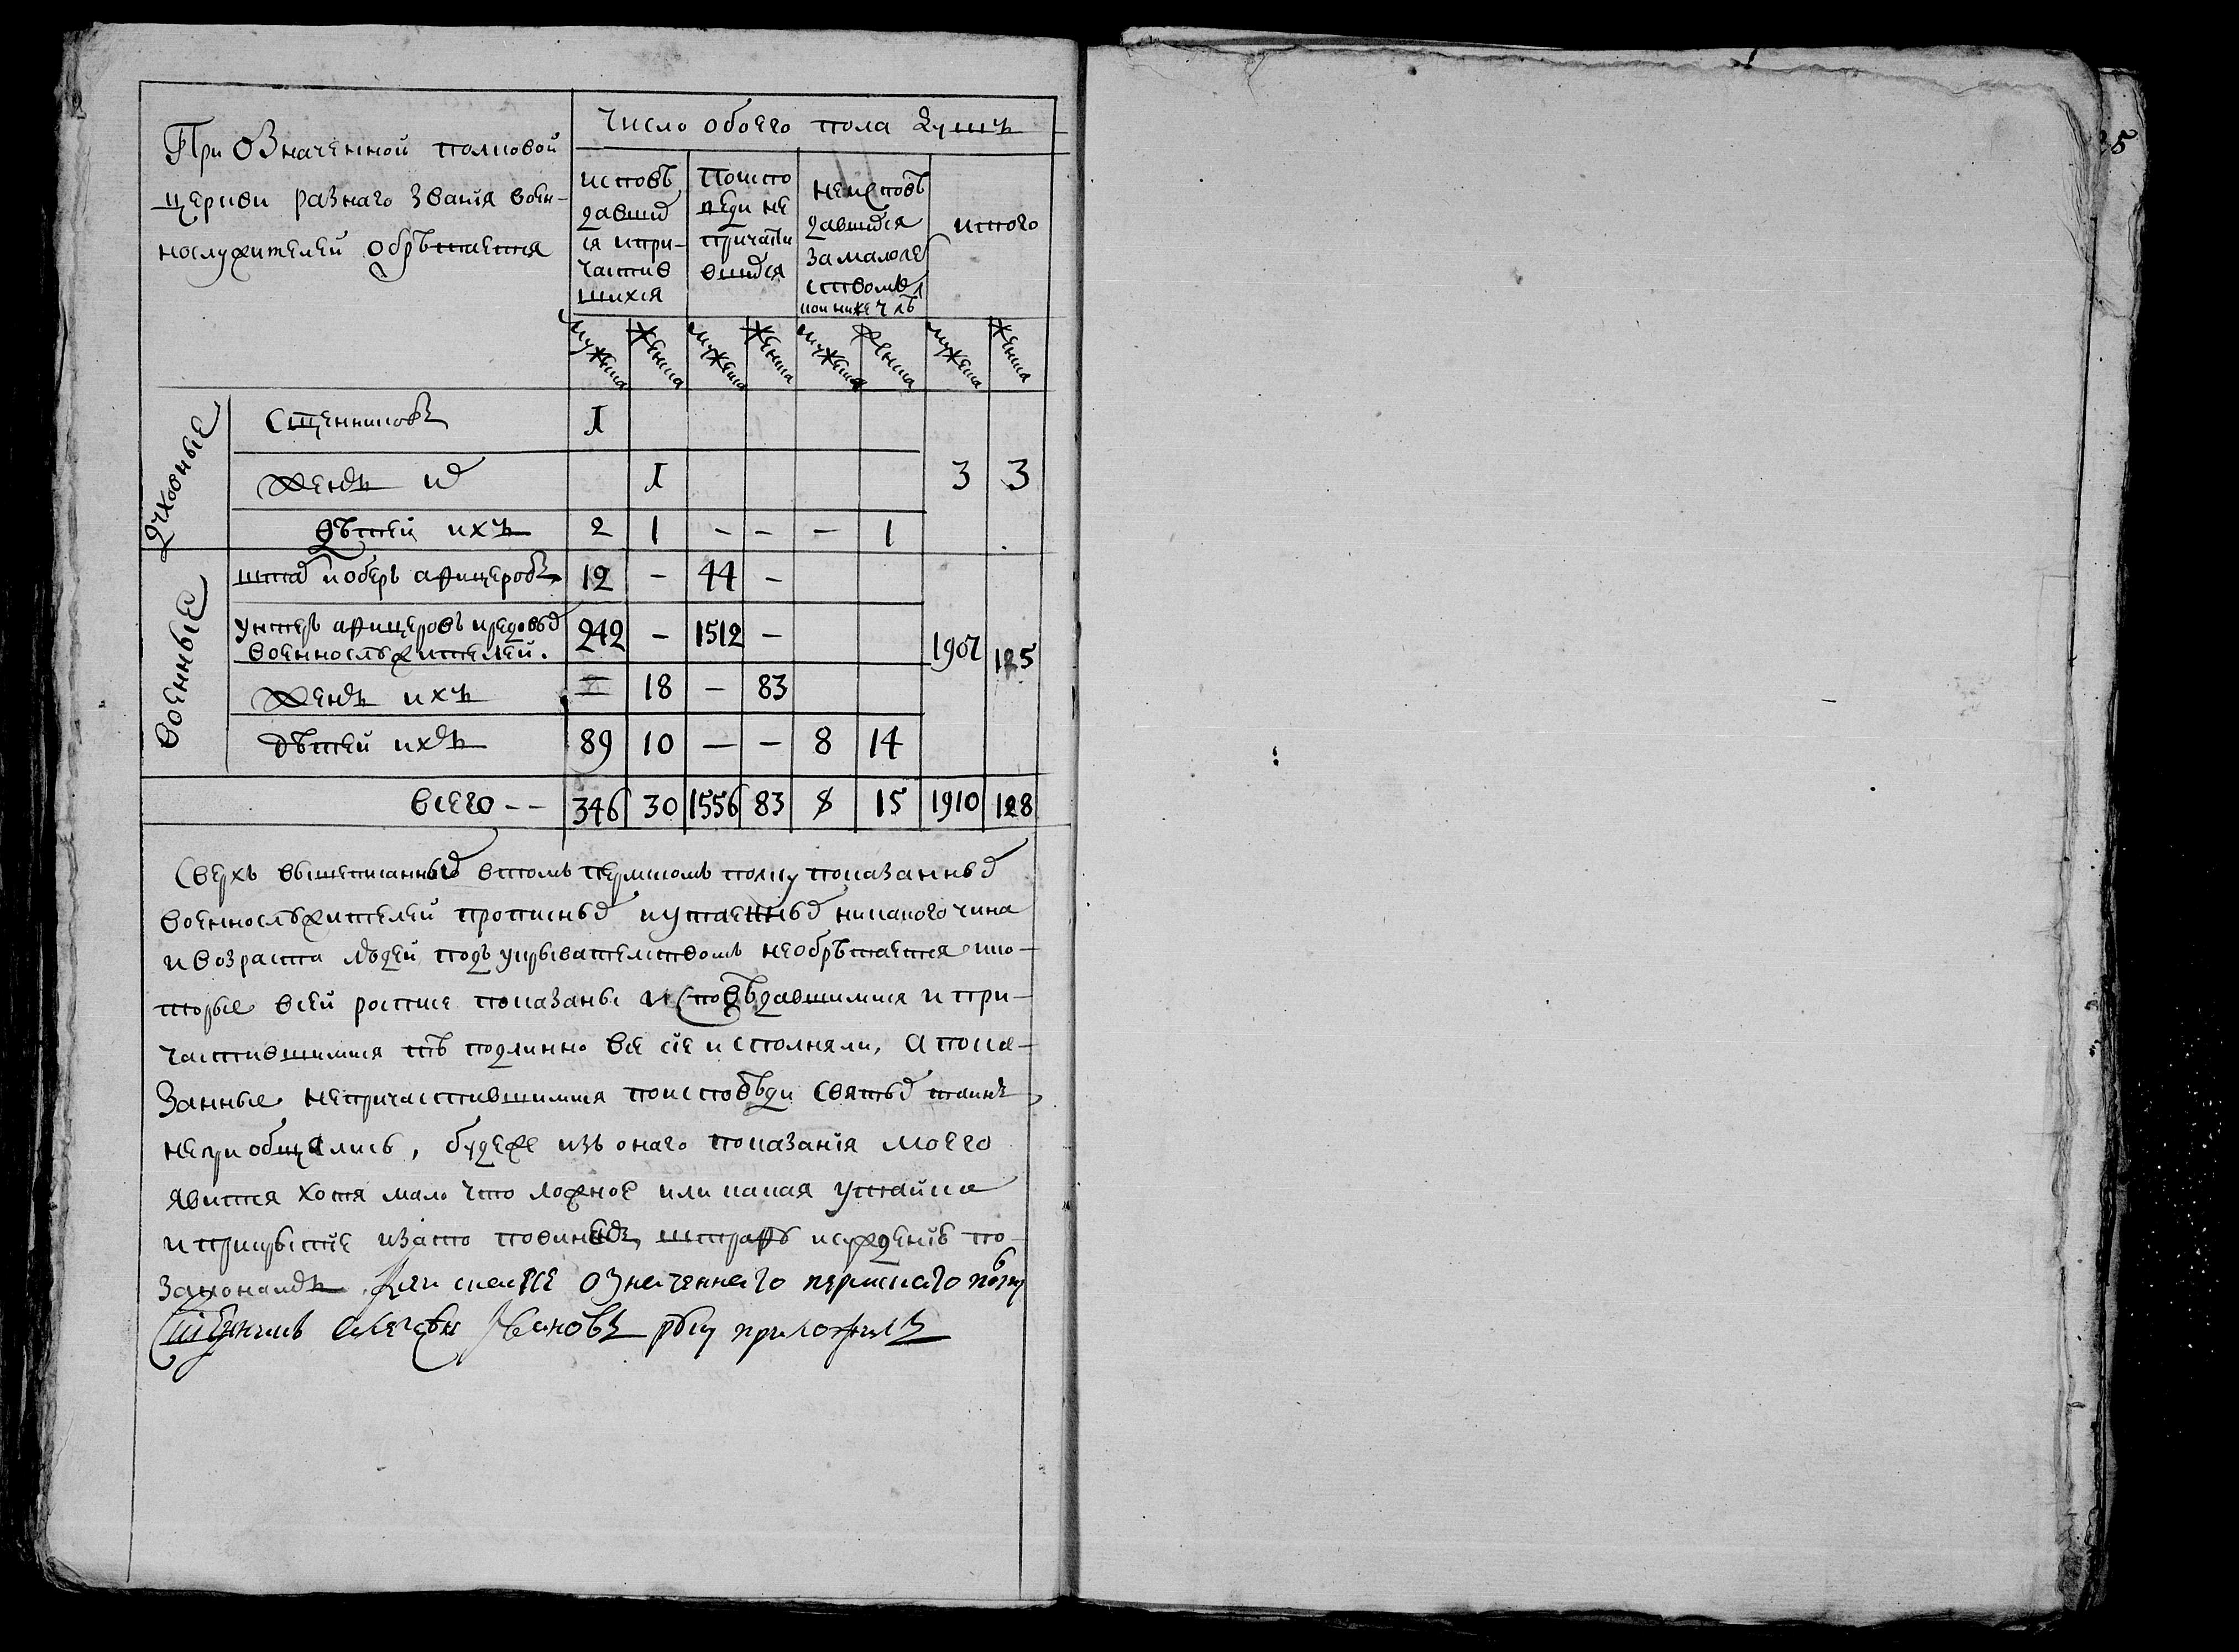 При означенной полковой
церкви разнаго званія воен-
нослужителей обрѣтается
число обоего пола душъ
исповѣ
давших
ся и при-
частив
шихся
поиспо
веди не
причасти
вшихся
неисповѣ
давшихся
за малолет
ством
итого
мужеска
женска
мужеска
женска
мужеска
женска
мужеска
женска
Духовные
Сщенниковъ 1
женъ их 1 3 3
дѣтей ихъ 2 1 - - - 1
Военные
штаб и оберъ афицеровъ 12 - 44 -
унтеръ афицеровъ и редовых
военнослужителей. 242 - 1512 - 1907 125
женъ ихъ 18 - 83
дѣтей ихъ 89 10 - - 8 14
всего - - 346 30 1556 83 8 15 1910 128
Сверхъ вышеписанных втомъ пермскомъ полку показанных
военнослужителей прописных и утаенных никакого чина
и возраста людей подъ укрывателством необрѣтается ко-
торые всей росписе показаны исповѣдавшимися и при-
частившимися тѣ подлинно все сіе исполняли, а пока-
занные непричастившимися поисповѣди святых таинъ
неприобщались, будеже изъ онаго показанія моего
явится хотя мало что ложное или какая утайка
и прикрытіе изато повиненъ штрафъ и сужденію по
законамъ К сей скаске означеннаго пермскаго полку
сщенникъ Алексѣй Ивановъ руку приложилъ
25